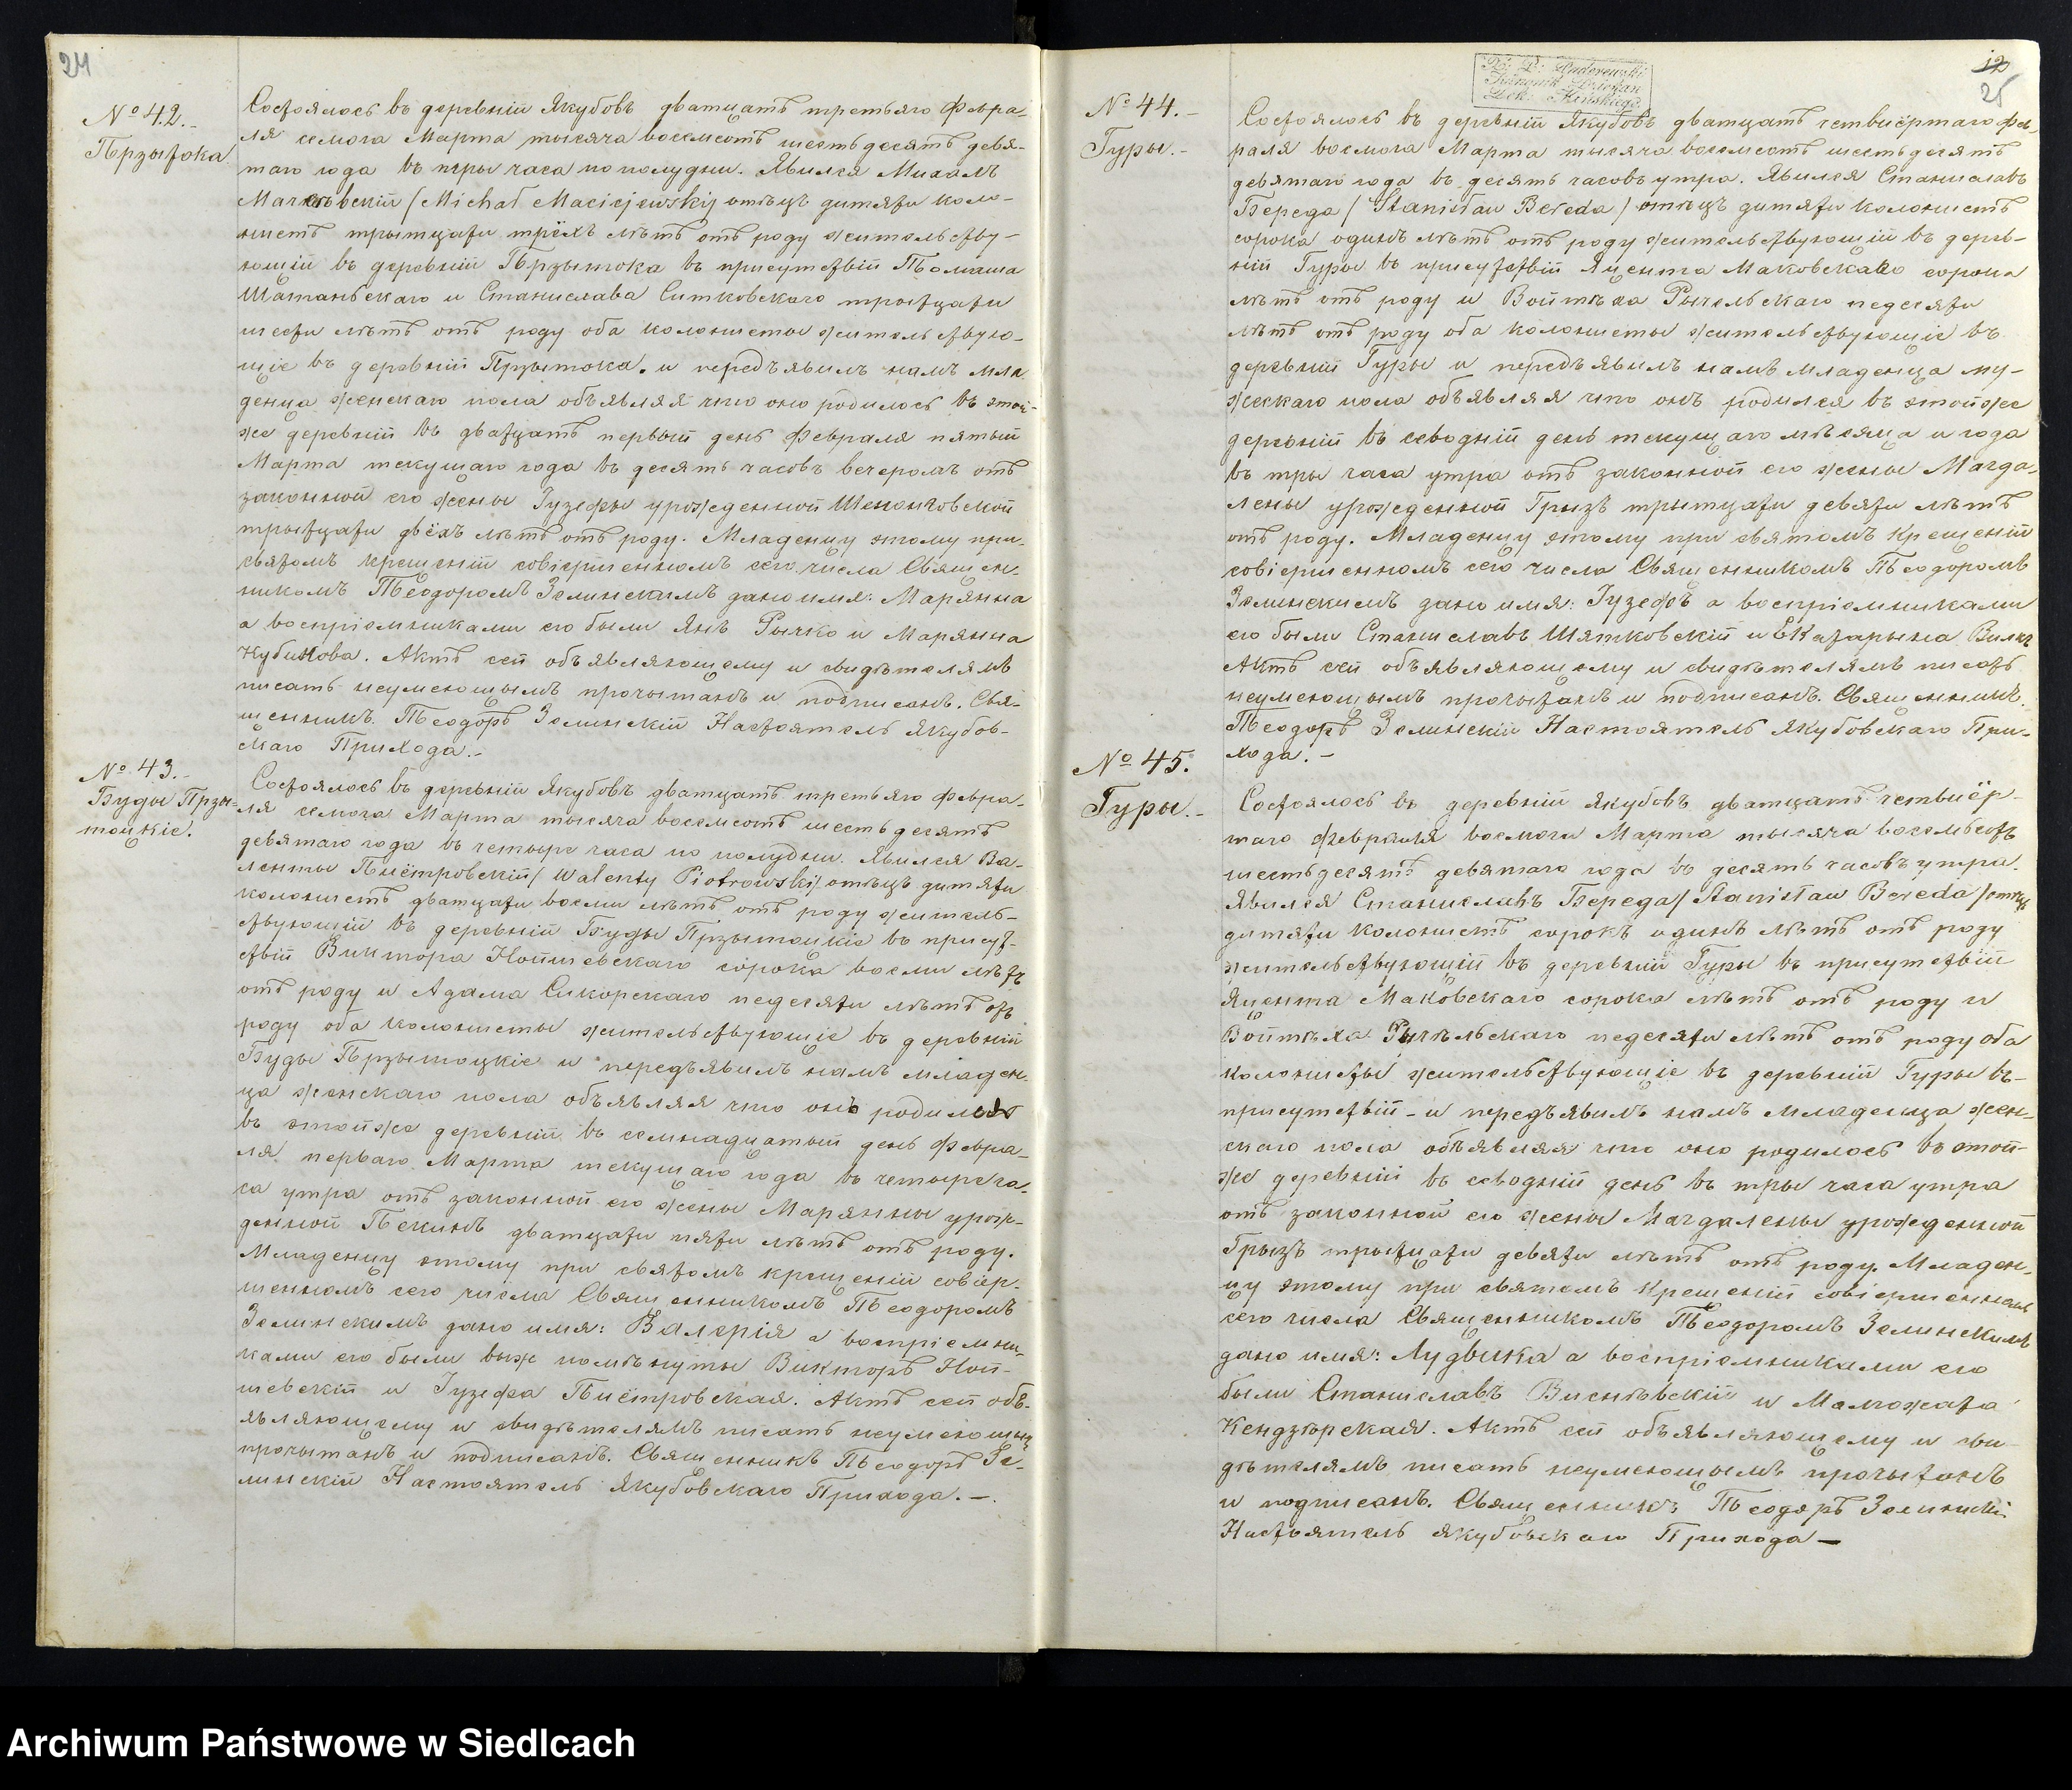 24
№ 42.
Прзытока
Состоялось въ деревнiи Якубовъ дватцатъ третьяго Февра-
ля семога Марта тысяча восемсотъ шестьдесятъ девя-
таго года въ тры часа по полудни. Явился Михалъ
/Michał Maciejewski/ отѣцъ дитяти коло-
нистъ трытцати трёхъ лѣтъ отъ роду жительству-
ющiй въ деревнiи Прзытока въ присутствiй Томаша
и Станислава Ситковскаго трытцати
шести лѣтъ отъ роду оба колонисты жительствую-
щiе въ деревнiи Прзытока. и передъявилъ намъ мла
денца женскаго пола объявляя что оно родилось въ этой-
же деревнiи въ дватцатъ первый день Февраля пятый
Марта текущаго года въ десять часовъ вечеромъ отъ
законной его жены Iузефы урожденной
трытцати двёхъ лѣтъ отъ роду. Младенцу этому при
святомъ крещенiй совiершенномъ сего числа Священ-
никомъ Теодоромъ Зелинскимъ дано имя: Марянна
а воспрiемниками его были Янъ Рычко и Марянна
Кубикова. Актъ сей объявляющему и свидѣтелямъ
писать неумеющымъ прочытанъ и подписанъ. Свя-
щенникъ Теодоръ Зелинскiй Настоятель Якубов-
скаго Прихода.-
№ 43.
Буды Прзы-
тоцкiе.
Состоялось въ деревнiй Якубовъ дватцатъ третьяго Февра-
ля семога Марта тысяча восемсотъ шестьдесятъ
девятаго года въ четыре часа по полудни. Явился Ва-
ленты Пiётровскiй /Walenty Piotrowski/ отѣцъ дитяти
колонистъ дватцати восми лѣтъ отъ роду житель-
ствующiй въ деревнiй Буды Прзытоцкiе въ присут-
ствiй Виктора Нойшевскаго сорока восми лѣтъ
отъ роду и Адама Сикорскаго педесяти лѣтъ отъ
роду оба колонисты жительствующiе въ деревнiй
Буды Прзытоцкiе и передъявилъ намъ младен-
ца женскаго пола объявляя что онъ родился
въ этойже деревнiй въ семнадцатый день Февра-
ля перваго Марта текущаго года въ четыре ча-
са утра отъ законной его жены Марянны урож-
денной Пекинъ дватцати пяти лѣтъ отъ роду.
Младенцу этому при святомъ крещенiй совiер-
шенномъ сего числа Священникомъ Теодоромъ
Зелинскимъ дано имя: Валерiя а воспрiемни-
ками его были выж помѣнуты Викторъ Ной-
шевскiй и Iузефа Пiётровская. Актъ сей объ-
являющему и свидѣтелямъ писать неумеющымъ
прочытанъ и подписанъ. Священникъ Теодоръ Зе-
линскiй Настоятель Якубовскаго Прихода.-.
12
25
№ 44.-
Гуры.-
Состоялось въ деревнiй Якубовъ дватцатъ четвiёртаго Фев-
раля восмога Марта тысяча восемсотъ шестьдесятъ
девятаго года въ десять часовъ утра. Явился Станиславъ
Береда /Stanisław Bereda/ отѣцъ дитяти колонистъ
сорока одинъ лѣтъ отъ роду жительствующiй въ дерев-
нiй Гуры въ присутствiй Яцента Маковскаго сорока
лѣтъ отъ роду и Войтѣха педесяти
лѣтъ отъ роду оба колонисты жительствующiе въ
деревнiй Гуры и передъявилъ намъ младенца му-
жескаго пола объявляя что онъ родился въ этойже
деревнiй въ севоднiй день текущаго мѣсяца и года
въ тры часа утра отъ законной его жены Магда-
лены урожденной Грызъ трытцати девяти лѣтъ
отъ роду. Младенцу этому при святомъ Крещенiй
совiершенномъ сего числа Священникомъ Теодоромъ
Зелинскимъ дано имя: Iузефъ а воспрiемниками
его были Станиславъ Шятковскiй и Екатарына Вилкъ
Актъ сей объявляющему и свидѣтелямъ писать
неумеющымъ прочытанъ и подписанъ. Священникъ
Теодоръ Зелинскiй Настоятель Якубовскаго При-
хода.-
№ 45.
Гуры.-
Состоялось въ деревнiй Якубовъ дватцатъ четвiёр-
таго Февраля восмога Марта тысяча восемьсотъ
шестьдесятъ девятаго года въ десять часовъ утра.
Явился Станиславъ Береда /Stanisław Bereda/ отѣцъ
дитяти колонистъ сорокъ одинъ лѣтъ отъ роду
жительствующiй въ деревнiй Гуры въ присутствiй
Яцента Маковскаго сорока лѣтъ отъ роду и
Войтѣха педесяти лѣтъ отъ роду оба
колонисты жительствующiе въ деревнiй Гуры въ-
присутствiй - и передъявилъ намъ младенца жен-
скаго пола объявляя что оно родилось въ этой-
же деревнiй въ севоднiй день въ тры часа утра
отъ законной его жены Магдалены урожденной
Грызъ трытцати девяти лѣтъ отъ роду. Младен-
цу этому при святомъ Крещенiй совiершенномъ
сего числа Священникомъ Теодоромъ Зелинскимъ
дано имя: Лудвика а воспрiемниками его
были Станиславъ и Малгожата
Кендзѣрская. Актъ сей объявляющему и сви-
дѣтелямъ писать неумеющымъ прочытанъ
и подписанъ. Священникъ Теодоръ Зелинскiй
Настоятель Якубовскаго Прихода —
Archiwum Państwowe w Siedlcach